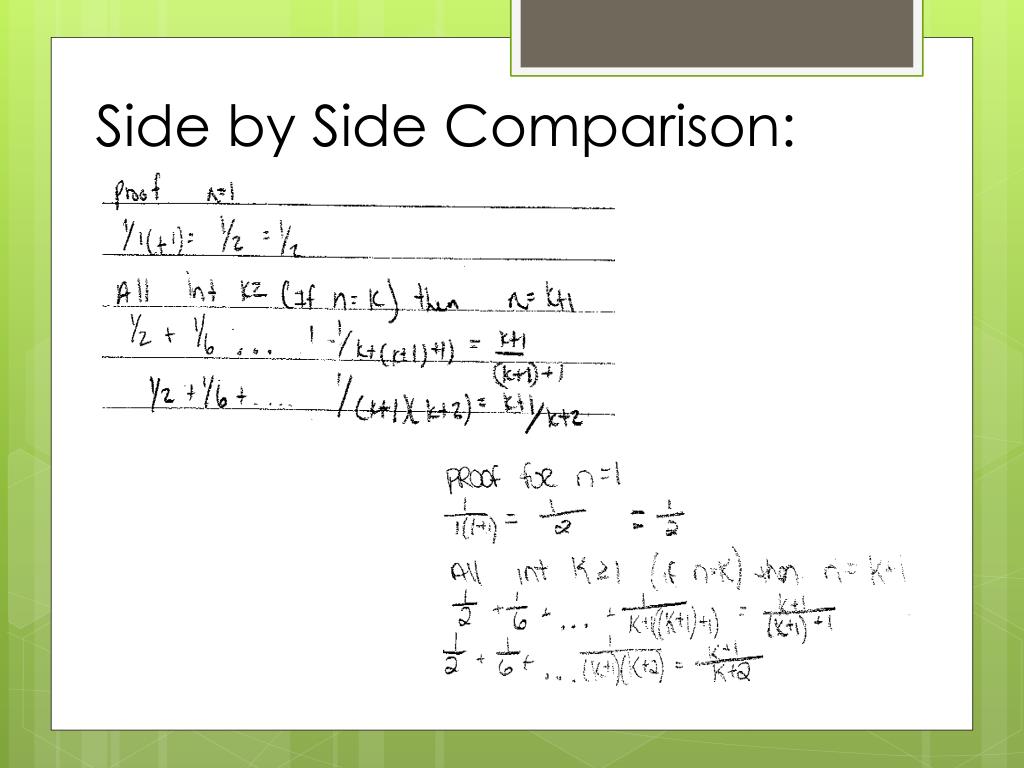 Side by Side Comparison:
Proof n=1
1/1(+1)= 1/2 = 1/2
All int k≥ (If n=k) then n=k+1
1/2 + 1/6 ... 1/k+(k+1)+1) = k+1/(k+1)+1
1/2 + 1/6 + .... 1/(k+1)(k+2) = k+1/k+2
PROOF for n=1
1/1(1+1) = 1/2 = 1/2
All int K≥1 (if n=K) then n=K+1
1/2 + 1/6 + ... + 1/K+1((K+1)+1) = K+1/(K+1)+1
1/2 + 1/6 + ... 1/(K+1)(K+2) = K+1/K+2